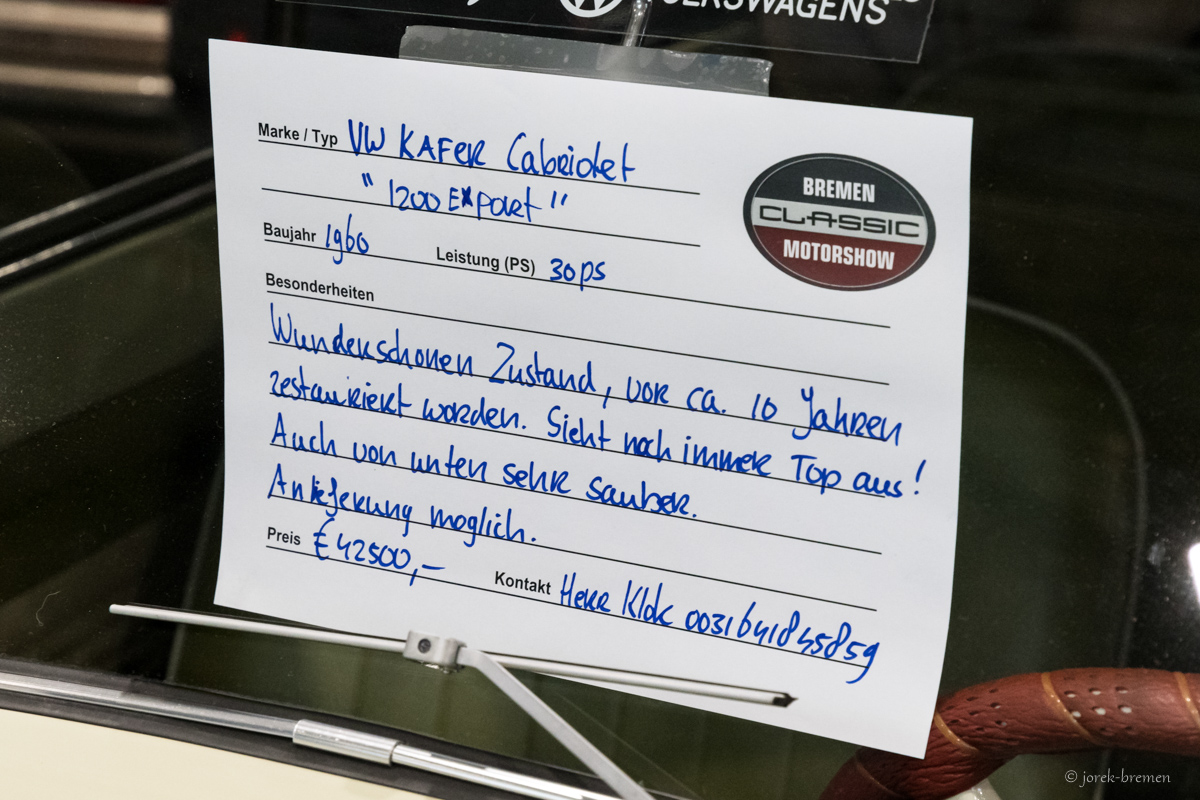 VOLKSWAGENS
Marke / Typ VW KAFER Cabriolet
"1200 EXport"
Baujahr 1960 Leistung (PS) 30ps
Besonderheiten
Wunderschonen Zustand, vor ca. 10 Jahren
restauriert worden. Sieht noch immer Top aus!
Auch von unten sehr sauber.
Anlieferung moglich.
Preis € 42500,-
Kontakt Herr Klok 0031641845859
BREMEN
CLASSIC
MOTORSHOW
© jorek-bremen